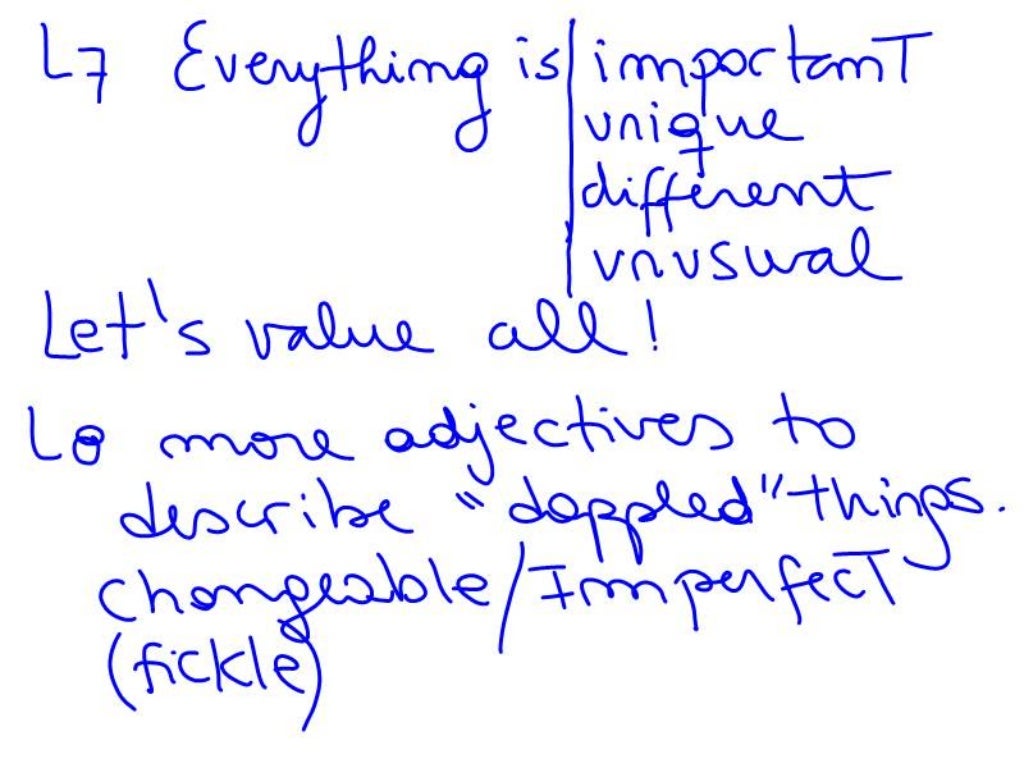 L7 Everything is important
unique
different
unusual
Let's value all!
L8 more adjectives to
describe "dappled" things.
changeable/Imperfect
(fickle)